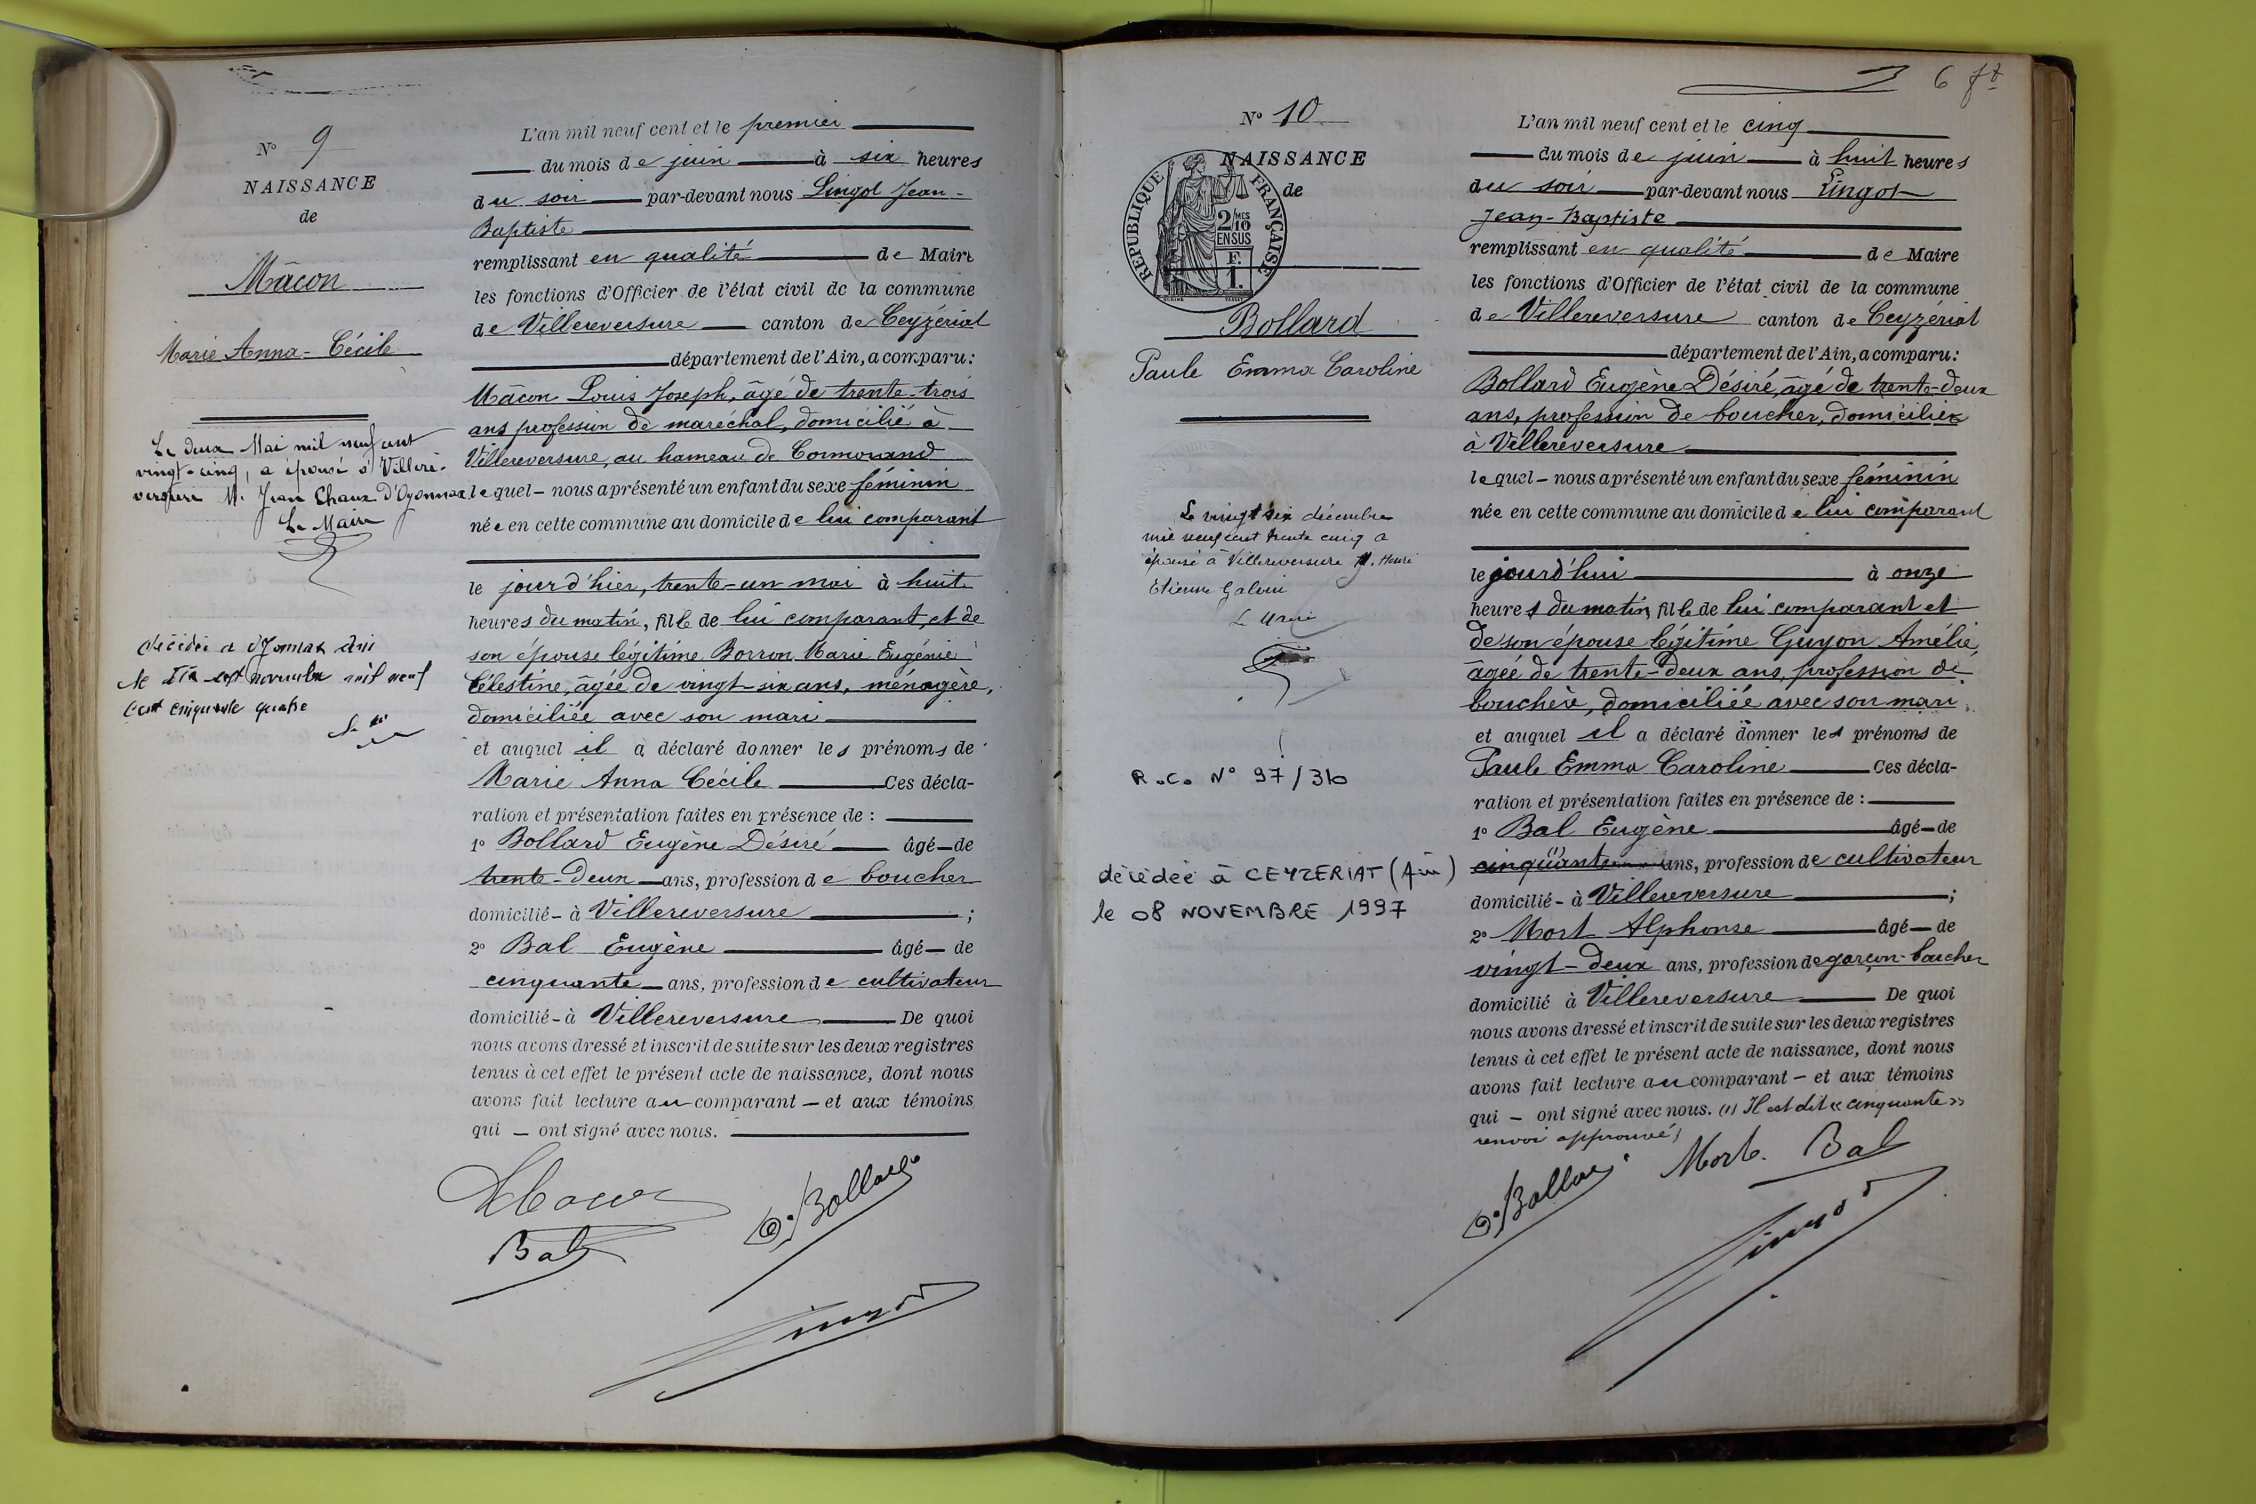 Nº 9
NAISSANCE
de
Mâcon
Marie Anna-Cécile
Le deux Mai mil neuf cent
vingt-cinq, a épousé à Villere-
versure M. Jean Chanx d'Oyonnax
Le Maire
décédée à Oyonnax Ain
le novembre mil neuf
cent cinquante quatre
L'an mil neuf cent et le premier
du mois de juin à six heures
du soir par-devant nous Lingot Jean-
Baptiste
remplissant en qualité de Maire
les fonctions d'Officier de l'état civil de la commune
de Villereversure canton de Ceyzériat
département de l'Ain, a comparu:
Mâcon Louis Joseph, âgé de trente-trois
ans profession de maréchal, domicilié à
Villereversure, au hameau de Cormorand
lequel – nous a présenté un enfant du sexe féminin
née en cette commune au domicile de lui comparant
le jour d'hier, trente-un mai à huit
heures du matin, fille de lui comparant, et de
son épouse légitime Borron Marie Eugénie
Célestine, âgée de vingt-six ans, ménagère,
domiciliée avec son mari
et auquel il a déclaré donner les prénoms de
Marie Anna Cécile Ces décla-
ration et présentation faites en présence de :
1º Bollard Eugène Désiré âgé – de
trente-deux ans, profession de boucher
domicilié - à Villereversure ;
2º Bal Eugène âgé – de
cinquante ans, profession de cultivateur
domicilié - à Villereversure De quoi
nous avons dressé et inscrit de suite sur les deux registres
tenus à cet effet le présent acte de naissance, dont nous
avons fait lecture au comparant – et aux témoins
qui – ont signé avec nous.
D. Bollard
Bal
Lingot
6 ft
Nº 10
NAISSANCE
de
RÉPUBLIQUE FRANÇAISE
2/10 MES
EN SUS
F.
1.
Bollard
Paule Emma Caroline
Le vingt six décembre
mil neuf cent trente cinq a
épousé à Villereversure M. Henri
Etienne
R.C. Nº 97/310
décédée à CEYZERIAT (Ain)
le 08 NOVEMBRE 1997
L'an mil neuf cent et le cinq
du mois de juin à huit heures
du soir par-devant nous Lingot
Jean-Baptiste
remplissant en qualité de Maire
les fonctions d'Officier de l'état civil de la commune
de Villereversure canton de Ceyzériat
département de l'Ain, a comparu:
Bollard Eugène Désiré, âgé de trente-deux
ans, profession de boucher, domicilié
à Villereversure
lequel – nous a présenté un enfant du sexe féminin
née en cette commune au domicile de lui comparant
le jourd'hui à onze
heures du matin, fille de lui comparant et
de son épouse légitime Guyon Amélie,
âgée de trente-deux ans, profession de
bouchère, domiciliée avec son mari
et auquel il a déclaré donner les prénoms de
Paule Emma Caroline Ces décla-
ration et présentation faites en présence de :
1º Bal Eugène âgé – de
cinquante ans, profession de cultivateur
domicilié - à Villereversure ;
2º Mort Alphonse âgé – de
vingt-deux ans, profession de garçon-boucher
domicilié à Villereversure De quoi
nous avons dressé et inscrit de suite sur les deux registres
tenus à cet effet le présent acte de naissance, dont nous
avons fait lecture au comparant – et aux témoins
qui – ont signé avec nous. (1) Il est dit « cinquante »
renvoi approuvé)
D. Bollard Mort. Bal
Lingot